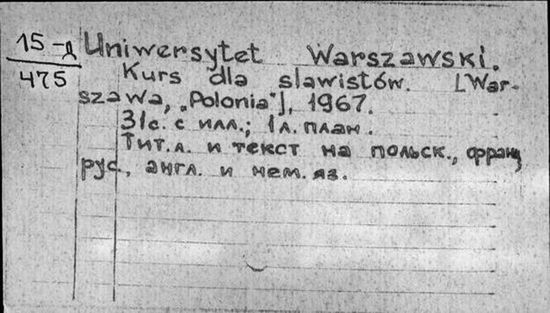 15-д
475
Uniwersytet Warszawski.
Kurs dla slawistów. [War-
szawa, „Polonia"], 1967.
31с. с илл.; 1л. план.
Тит.л. и текст на польск., франц
рус., англ. и нем. яз.